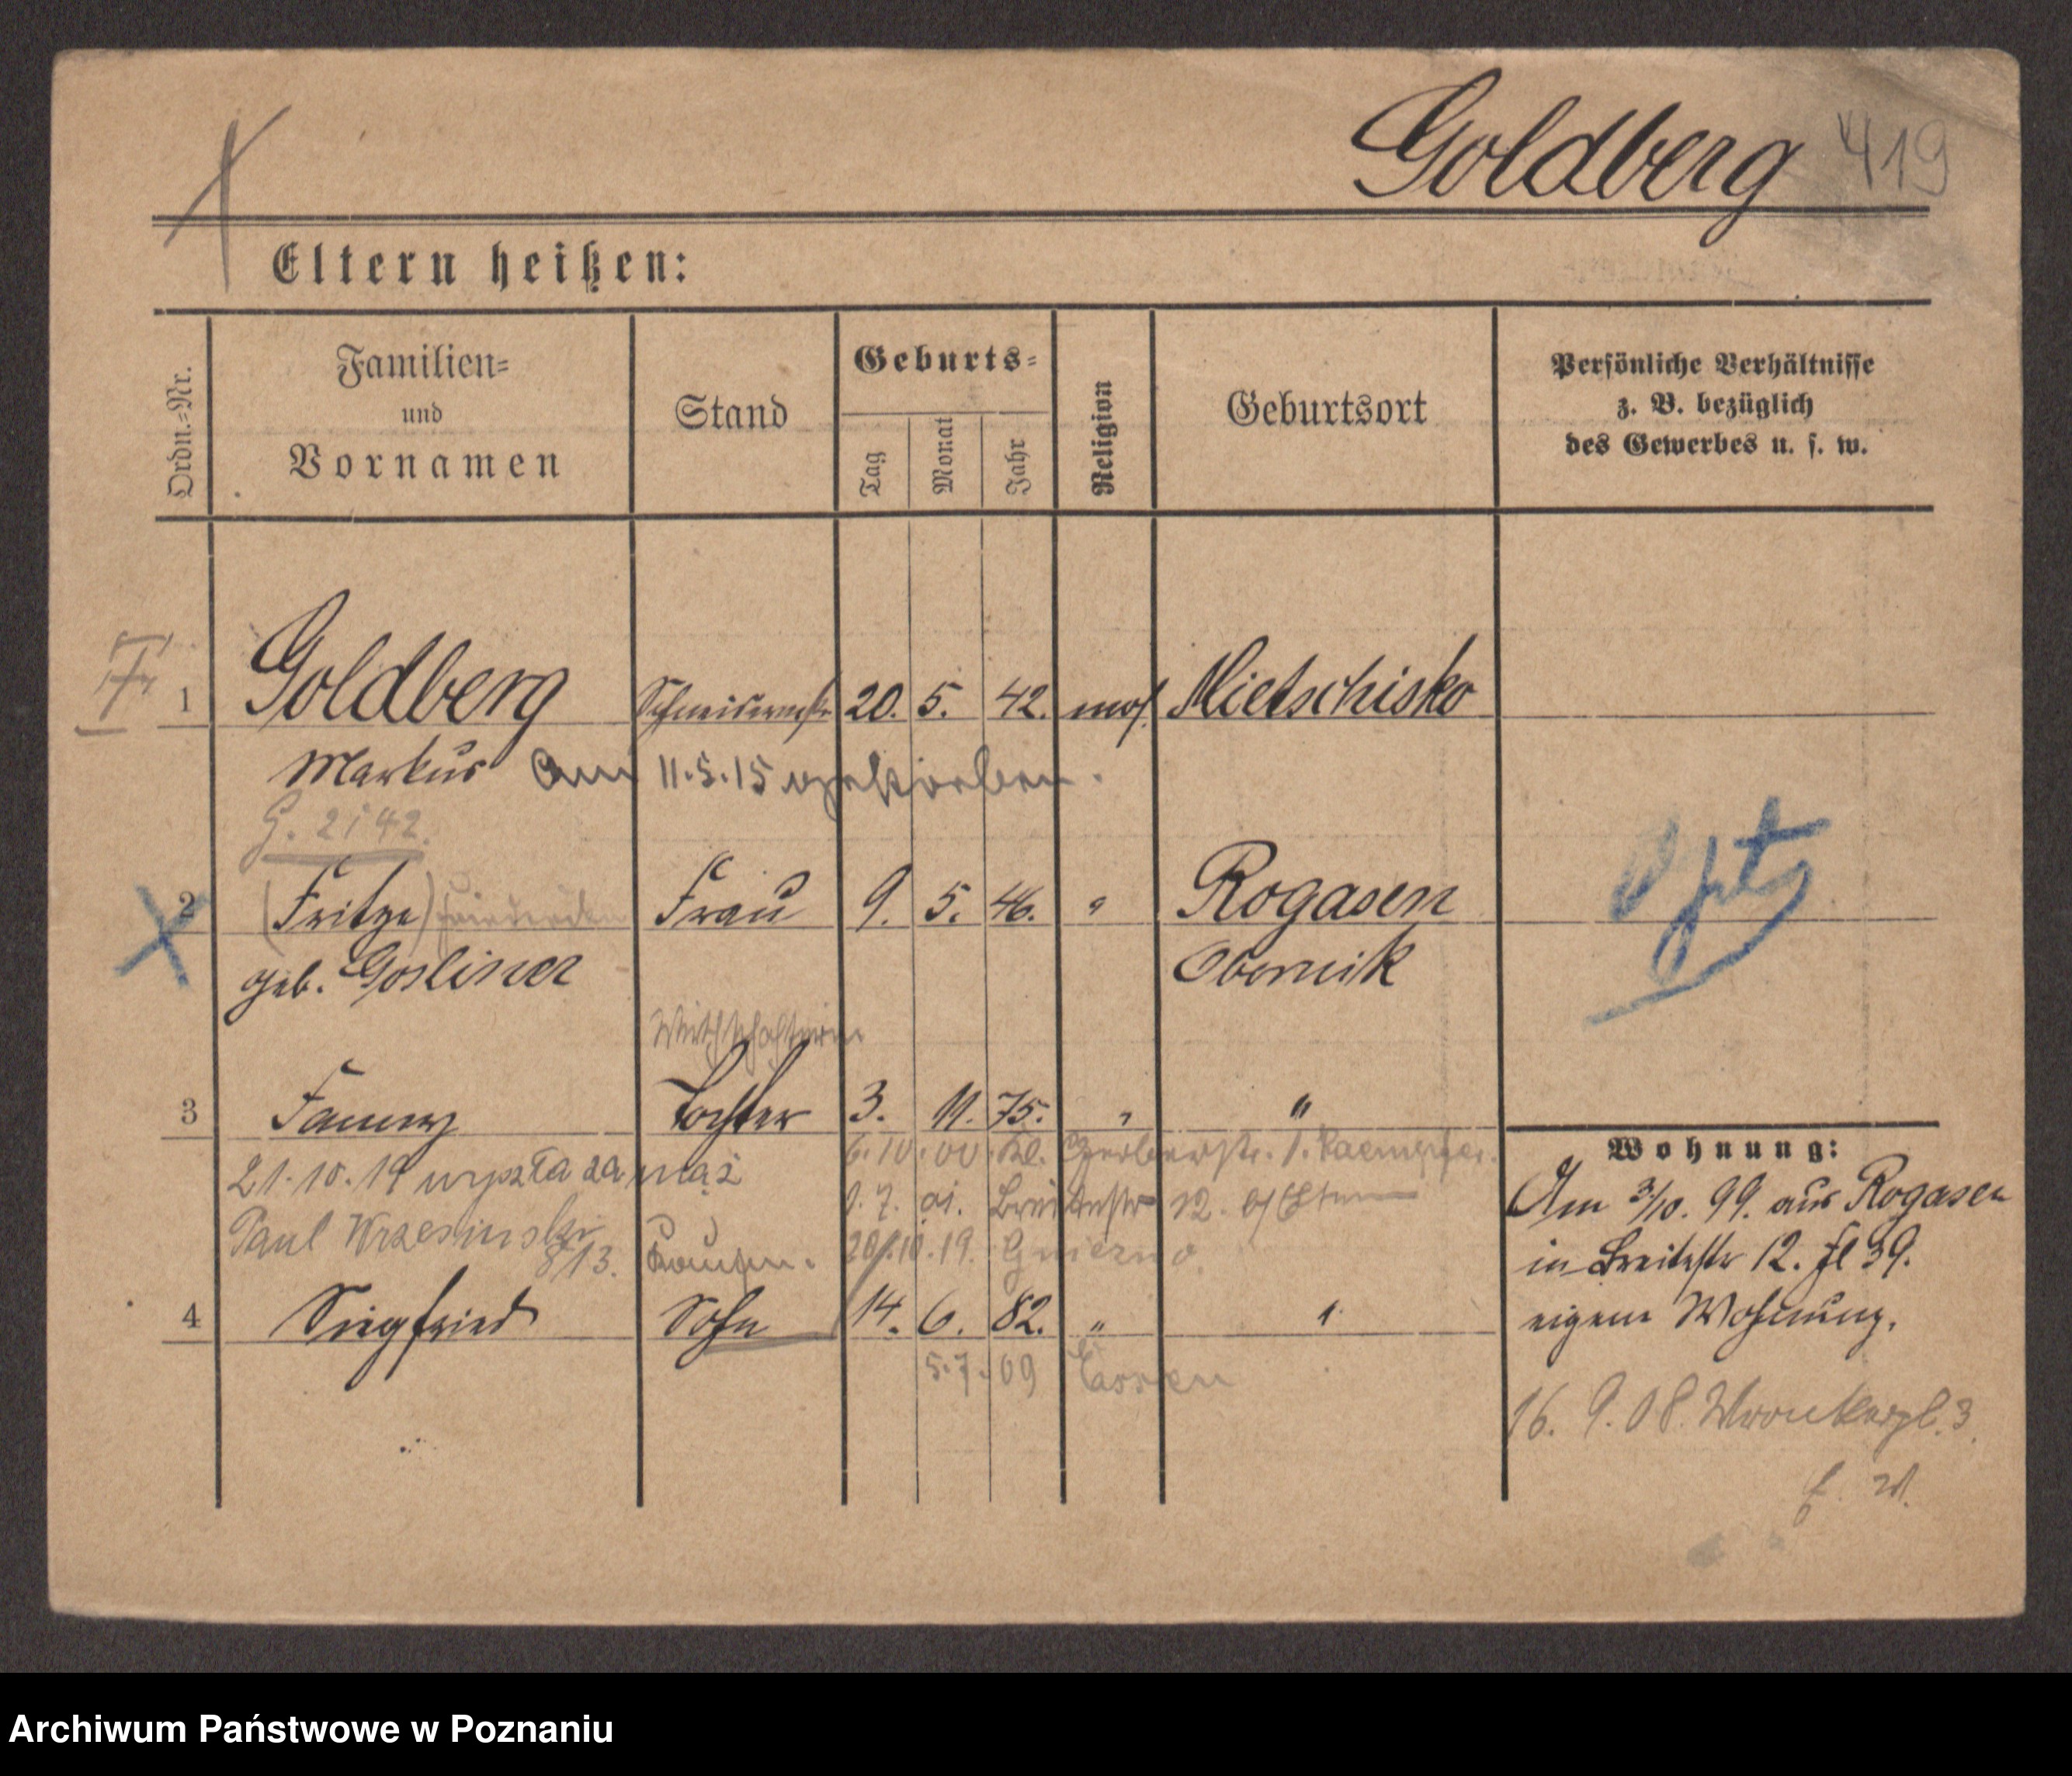 Goldberg 419
Eltern heißen:
Ordn.=Nr.
Familien=
und
Vornamen
Stand
Geburts=
Tag
Monat
Jahr
Religion
Geburtsort
Persönliche Verhältnisse
z. B. bezüglich
des Gewerbes u. s. w.
1 Goldberg Schneidermstr 20. 5. 42. mos. Mietschisko
Markus Am 11.5.15 gestorben.
G. 2142.
2 (Fritze) Friederike Frau 9. 5. 46. " Rogasen
geb. Gosliner Obornik
Wirthschafterin
3 Fanny Tochter 3. 11. 75. " "
6. 10. 00. Kl. Gerberstr. 1. Kaempfer.
21.10.19 wyszła za mąż
1. 7. 01. Breitestr 12. Eltern
Paul Wrzesinski
20.10.19. Gniezno.
813.
4 Siegfried Sohn 14. 6. 82. " "
5.7.09
Wohnung:
Am 3/10. 99. aus Rogasen
in Breitestr 12. fl 39.
eigene Wohnung.
16. 9. 08. Wronkerpl. 3.
Archiwum Państwowe w Poznaniu